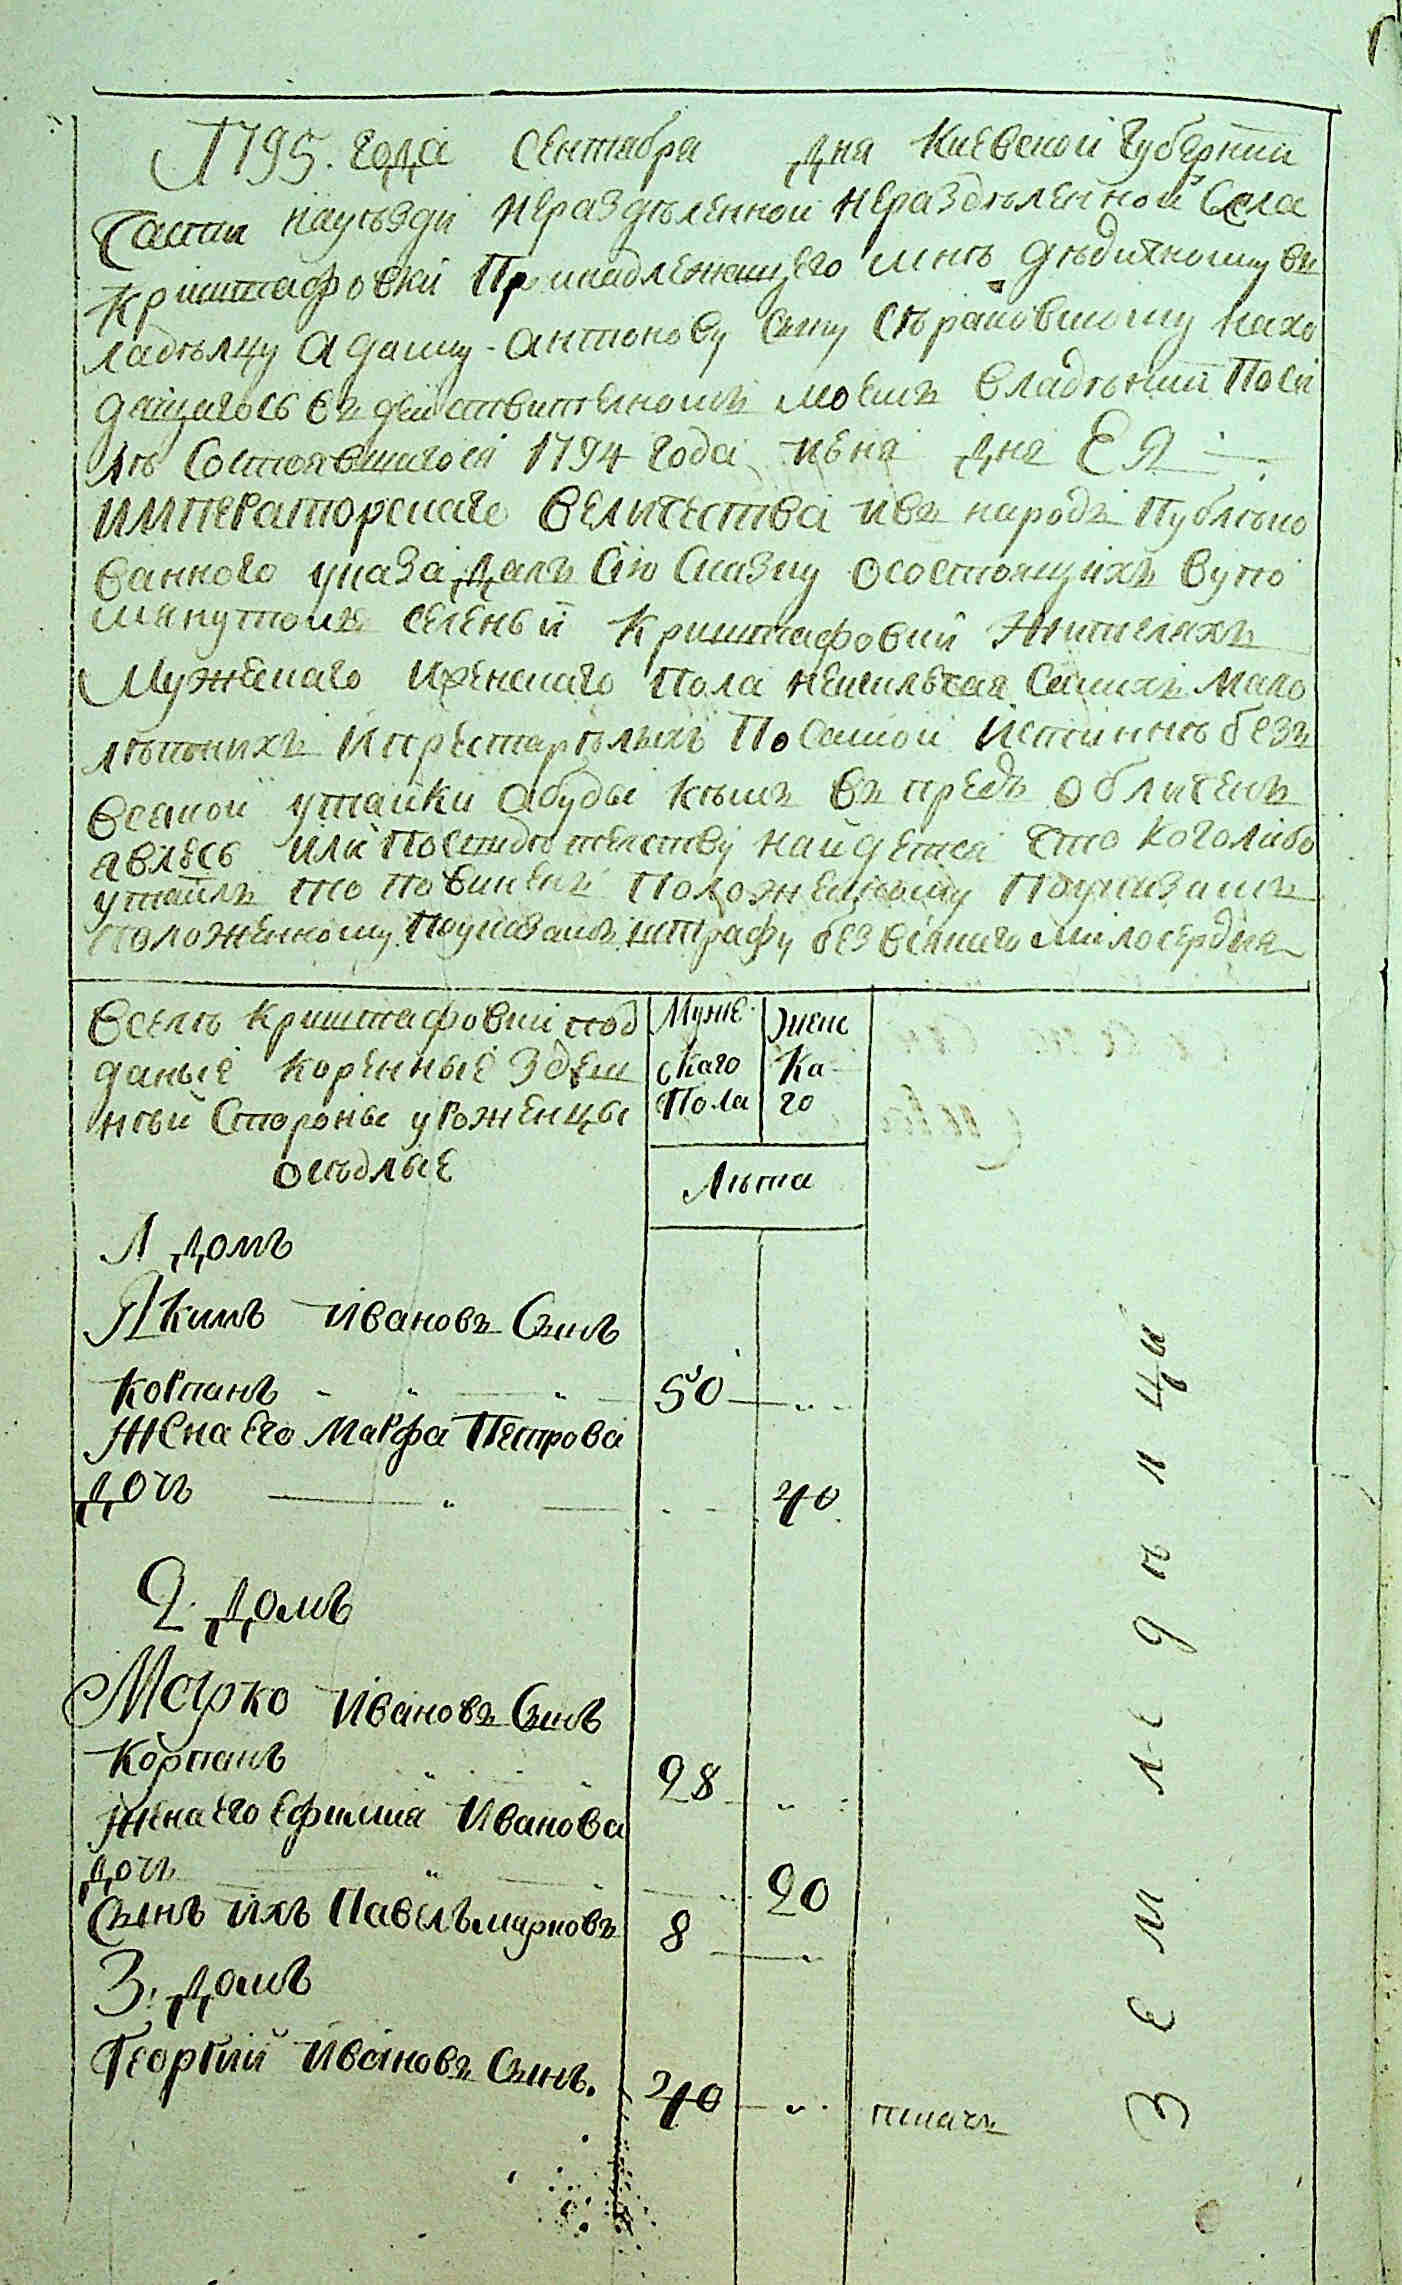 1795. года Сентабра дня Киевской Губернии
Части науъзди нераздѣленной нераздѣленной Села
Криштафовки Принадлежащего мнѣ дѣдичному вл
ладѣлцу Адаму Антонову Сыну нахо
дящагось въ действителномъ моемъ владѣнии Посл
лѣ Состоявшагося 1794 года июня дня ЕЯ
ИМПЕРАТОРСКАГО ВЕЛИЧЕСТВА ивъ народъ Публико
ванного указа далъ Сию Сказку осостоящихъ вупо
мянутомъ селеньи Криштафовки Жителахъ
Мужескаго Иженскаго Пола неисключая Самихъ Мало
лѣтнихъ Ипрестарѣлыхъ По Самой Истиннѣ безъ
всякой утайки абуды кѣмъ въ предъ обличенъ
явлюсь или Посвидѣтелству найдется что коголибо
утаилъ то повиненъ Положенному Поуказамъ
положенному Поуказамъ штрафу безвсякаго милосердия
Вселѣ Криштафовки под
даные коренные Здеш
нѣй Стороны уроженцы
осѣдлые
Муже
скаго
Пола
женс
ка
го
Лѣта
1 домъ
Якимъ Ивановъ Сынъ
Корпанъ 50
Жена Его Марфа Петрова
дочъ 40
2. домъ
Марко Ивановъ Сынъ
Корпанъ 28
Жена Его Ефимия Иванова
дочъ 20
Сынъ Ихъ Павелъ марковъ 8
3. домъ
Георгий Ивановъ Сынъ. 40 ткачъ
Земледѣлци